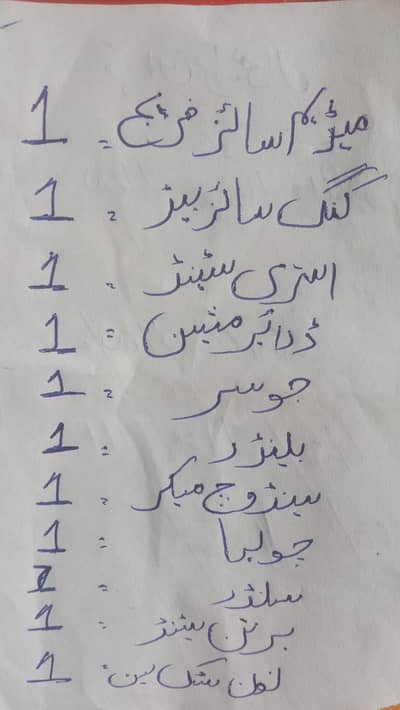 میڈیم سائز فریج = 1
کنگ سائز بیڈ = 1
استری سٹینڈ = 1
ڈرائیر مشین = 1
جوسر = 1
بلینڈر = 1
سینڈوچ میکر = 1
چولہا = 1
سلنڈر = 1
برتن سٹینڈ = 1
= 1